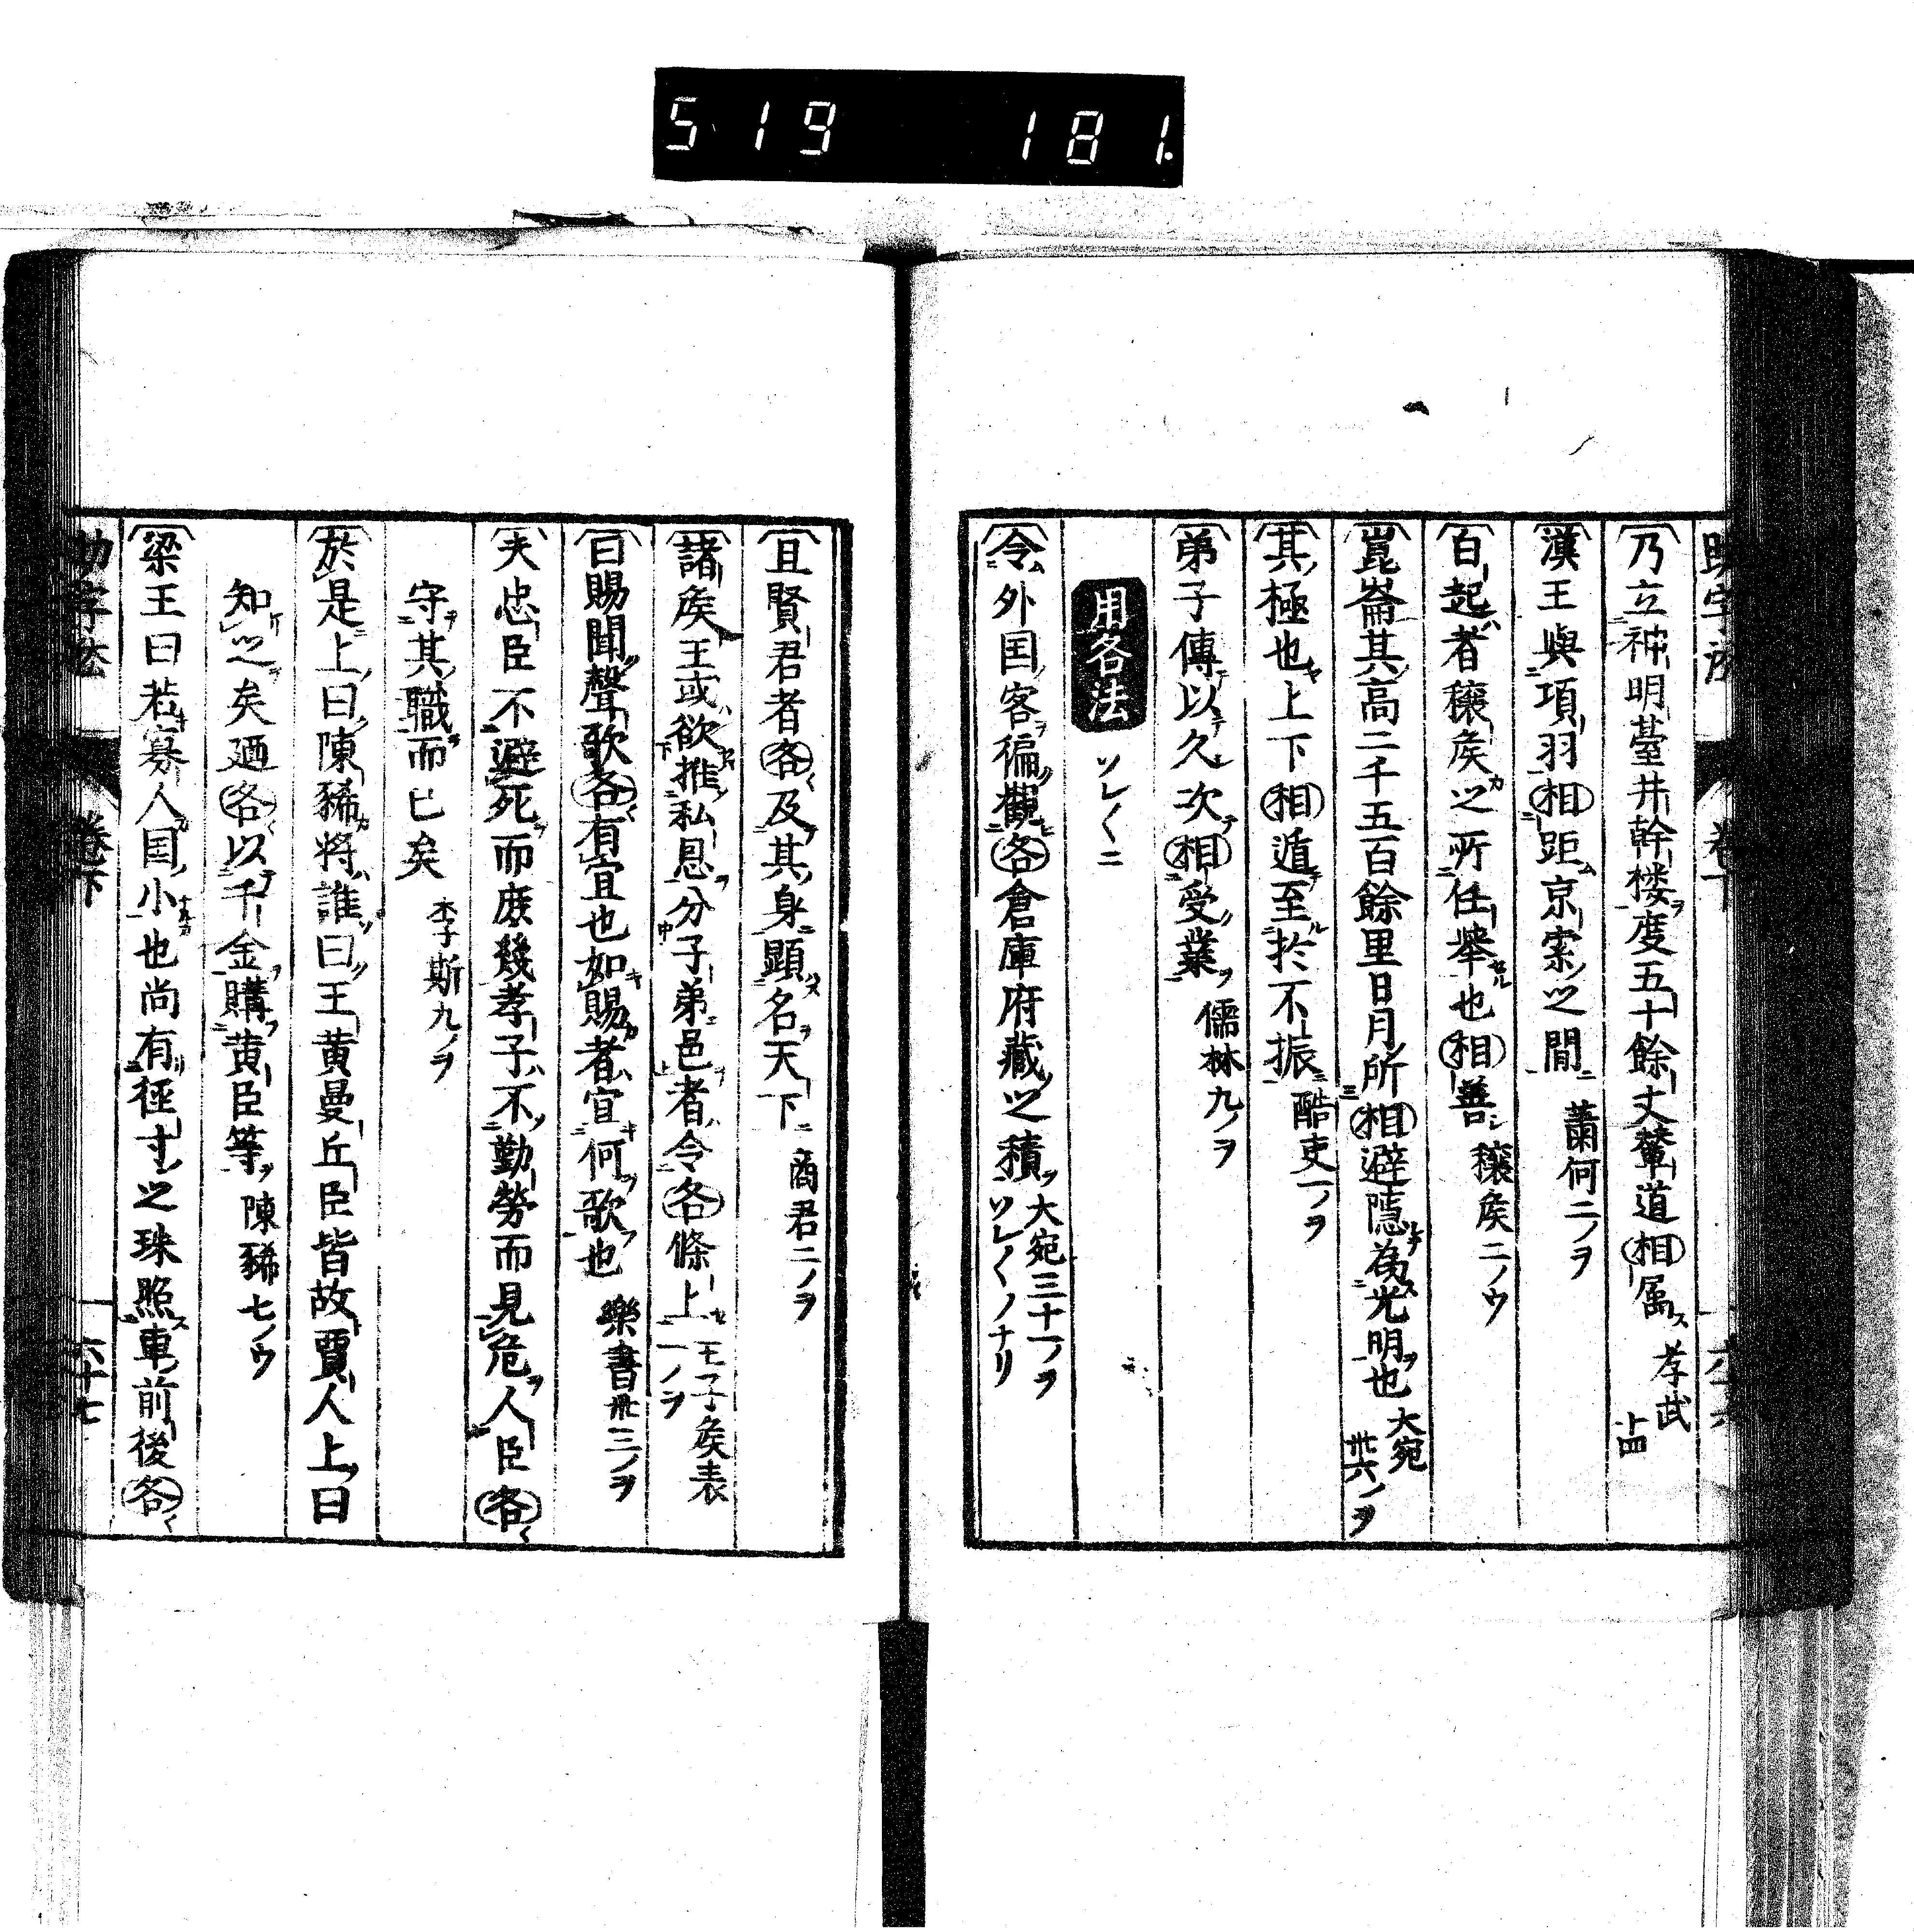 519 181.
助字法 卷下 六十六
乃立神明䑓井幹楼度五十餘丈輦道相属ス 孝武 上四
漢王與項羽相距京索之間 蕭何二ノヲ
白起者穰矦之所任舉也相善 穰矦二ノウ
崑崙其高二千五百餘里日月所相避隱為光明也 大宛 卅六ノヲ
其極也上下相遁至於不振 酷吏一ノヲ
弟子傳以久次相受業 儒林九ノヲ
用各法 ソレ〱ニ
令外国客徧觀各倉庫府藏之積 大宛三十一ノヲ ソレ〱ノナリ
且賢君者各及其身顯名天下 商君二ノヲ
諸矦王或欲推私恩分子弟邑者令各條上 王子矦表 一ノヲ
曰賜聞聲歌各有宜也如賜者宜何歌也 樂書卅三ノヲ
夫忠臣不避死而庶幾孝子不勤勞而見危人臣各
守其職而已矣 李斯九ノヲ
於是上曰陳豨將誰曰王黄曼丘臣皆故賈人上曰
知之矣廼各以千金購黄臣等 陳豨七ノウ
梁王曰若寡人国小也尚有徑寸之珠照車前後各
助字法 卷下 六十七